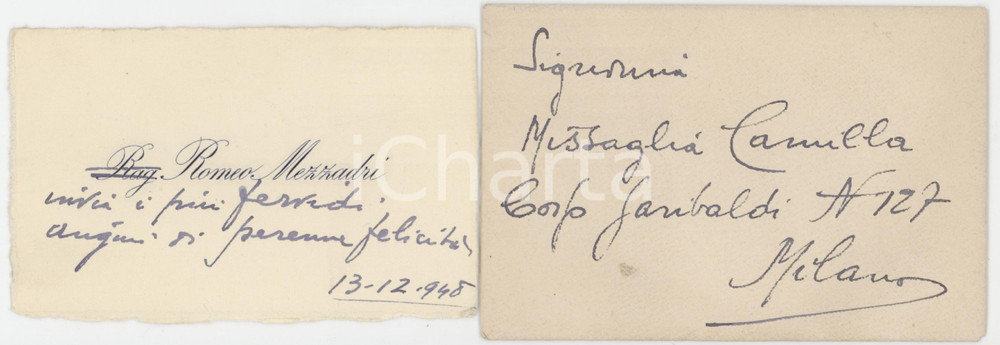 Rag. Romeo Mezzadri
invia i più fervidi
auguri di perenne felicità
13-12-948
Signorina
Missaglia Camilla
Corso Garibaldi N 127
Milano
iCharta